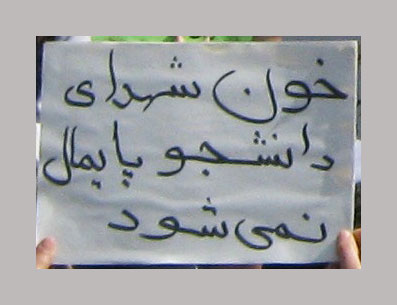 خون شهدای
دانشجو پایمال
نمی شود